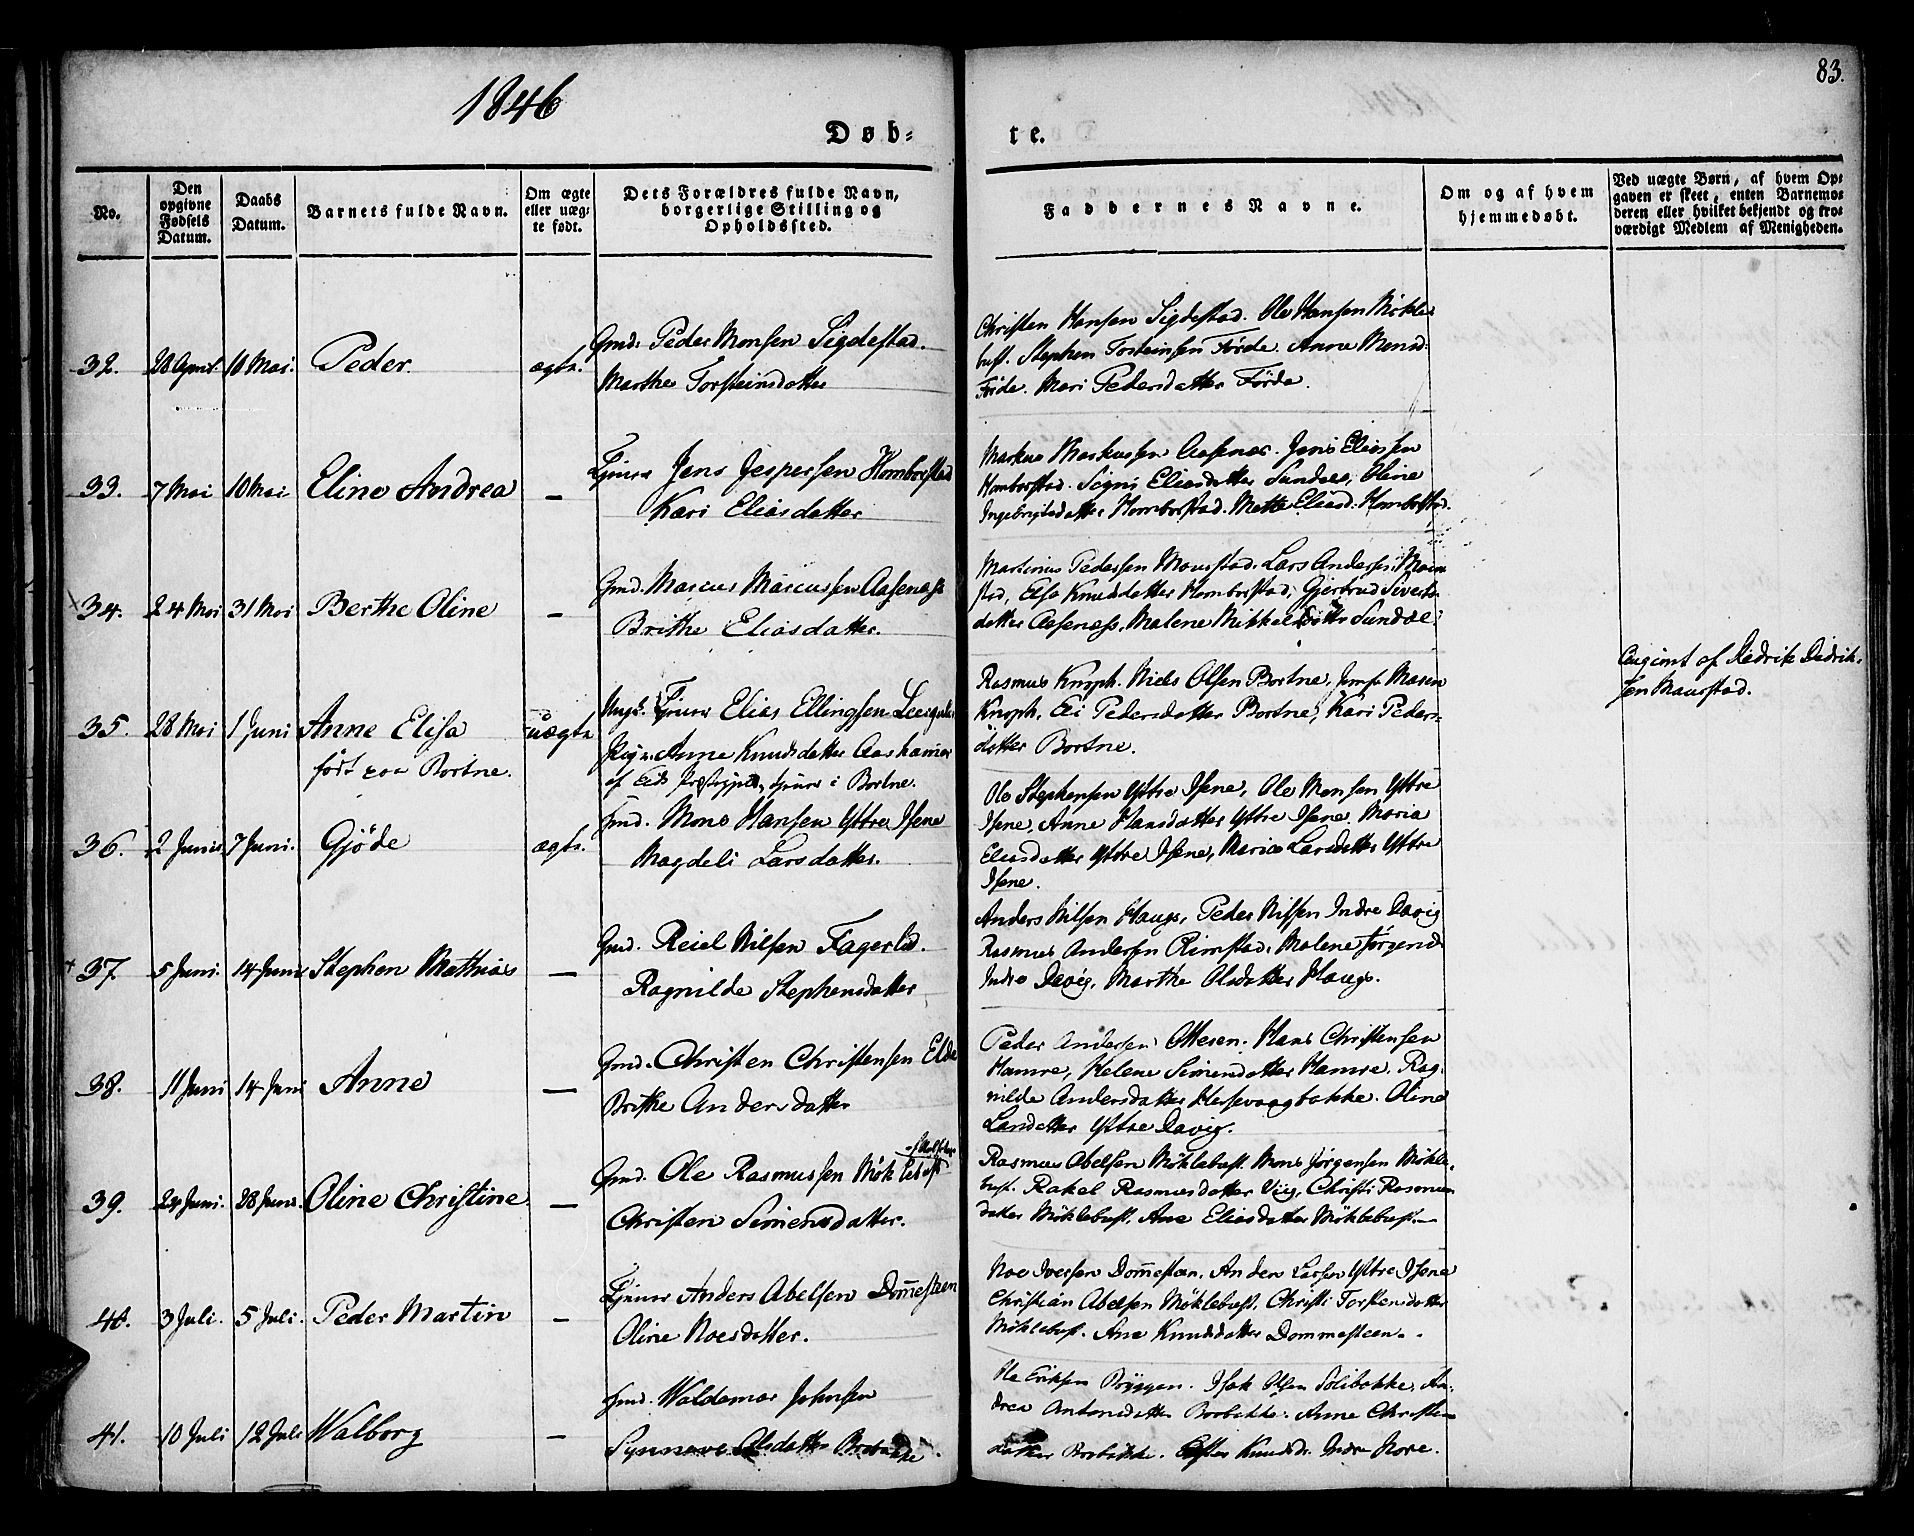 1846
83.
Døb=
te.
No.
Den opgivne Fødsels Datum.
Daabs Datum.
Barnets fulde Navn.
Om ægte eller uæg= te født.
Dets Forældres fulde Navn, borgerlige Stilling og Opholdssted.
Faddernes Navne.
Om og af hvem hjemmedøbt.
Ved uægte Børn, af hvem Op= gaven er skeet, enten Barnemo= deren eller hvilket bekjendt og tro= værdigt Medlem af Menigheden.
32. 28 April. 10 Mai. Peder. ægte.
Gmd. Peder Monsen Sigdestad.
Marthe Torsteinsdatter
Christen Hansen Sigdestad. Ole Hansen Mökle=
bust. Stephen Torsteinsen Förde. Anne Monsd.
Förde. Mari Pedersdatter Förde.
33. 7 Mai 10 Mai Eline Andrea —
Jens Jespersen Homborstad
Kari Eliasdatter
Markus Markussen Aasenæs. Jens Eliassen
Homborstad. Signi Eliasdatter Sundal, Oline
Ingebrigtsdatter Homborstad. Mette Eliasd. Homborstad.
34. 24 Mai 31 Mai Berthe Oline —
Gmd. Marcus Marcussen Aasenæss
Brithe Eliasdatter.
Martinus Pedersen Maurstad. Lars Andersen Maur=
stad, Elsa Knudsdatter Homborstad, Gjertrud Siverts=
datter Aasenæss. Malene Mikkelsdatter Sundal.
35. 28 Mai 1 Juni Anne Elisa uægte
født paa Bortne.
Ungk. Elias Ellingsen
Pige Anne Knudsdatter Aashamar
af Eids Præstegjeld, tjener i Bortne.
Rasmus Knoph. Niels Olsen Bortne, Jomf. Maren
Knoph, Eli Pedersdatter Bortne, Kari Peders=
datter Bortne.
Angivet af Didrik Didrik=
sen Maurstad.
36. 2 Juni 7 Juni. Gjöde ægte.
Gmd. Mons Hansen Yttre Isene
Magdeli Larsdatter.
Ole Stephensen Yttre Isene, Ole Monsen Yttre
Isene, Anne Hansdatter Yttre Isene, Maria
Eliasdatter Yttre Isene, Marie Larsdatter Yttre
Isene.
37 5 Juni. 14 Juni Stephen Mathias —
Gmd. Reiel Nilsen Fagerlid.
Ragnilde Stephensdatter
Anders Nilsen Hauge, Peder Nilsen Indre Davig
Rasmus Andersen Rimstad. Malene Jörgensd.
Indre Davig, Marthe Olsdatter Hauge.
38. 11 Juni 14 Juni Anne —
Gmd. Christen Christensen Elde
Brithe Andersdatter
Peder Andersen Ottesen. Hans Christensen
Hamre, Helene Simensdatter Hamre. Rag=
nilde Andersdatter Hessevaagbakke. Oline
Larsdatter Yttre Davig.
39. 24 Juni. 28 Juni. Oline Christine —
Gmd. Ole Rasmussen Möklebust
Christen Simensdatter.
Rasmus Abelsen Möklebust. Mons Jörgensen Mökle=
bust. Rakel Rasmusdatter Viig, Christi Rasmus=
datter Möklebust, Ane Eliasdatter Möklebust.
40. 3 Juli. 5 Juli. Peder Martin —
Anders Abelsen Dom̄esteen
Oline Noesdatter.
Noe Iversen Dom̄esteen. Anders Larsen Yttre Isene
Christian Abelsen Möklebust. Christi Torstensdatter
Möklebust. Ane Knudsdatter Dommesteen.
41. 10 Juli 12 Juli Walborg —
Gmd. Waldemar Johnsen
Synneve Olsdatter Borbakke.
Ole Eriksen Bryggen. Isak Olsen Solibakke. An=
drea Antonsdatter Borbakke. Anne Christens=
datter Borbakke. Knudsdr. Indre Nore.